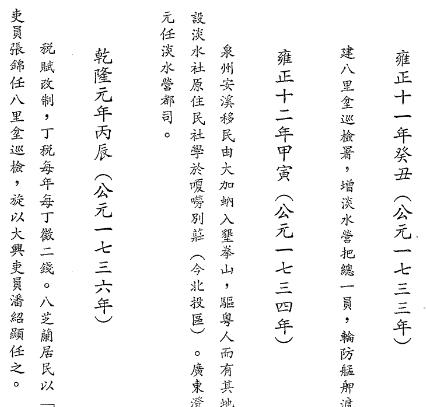 雍正十一年癸丑（公元一七三三年）
建八里坌巡檢署，增淡水營把總一員，輪防艋舺渡
雍正十二年甲寅（公元一七三四年）
泉州安溪移民由大加蚋入墾拳山，驅粵人而有其地
設淡水社原住民社學於嗄嘮別莊（今北投區）。廣東澄
元任淡水營都司。
乾隆元年丙辰（公元一七三六年）
稅賦改制，丁稅每年每丁徵二錢。八芝蘭居民以「
吏員張錦任八里坌巡檢，旋以大興吏員潘紹顯任之。